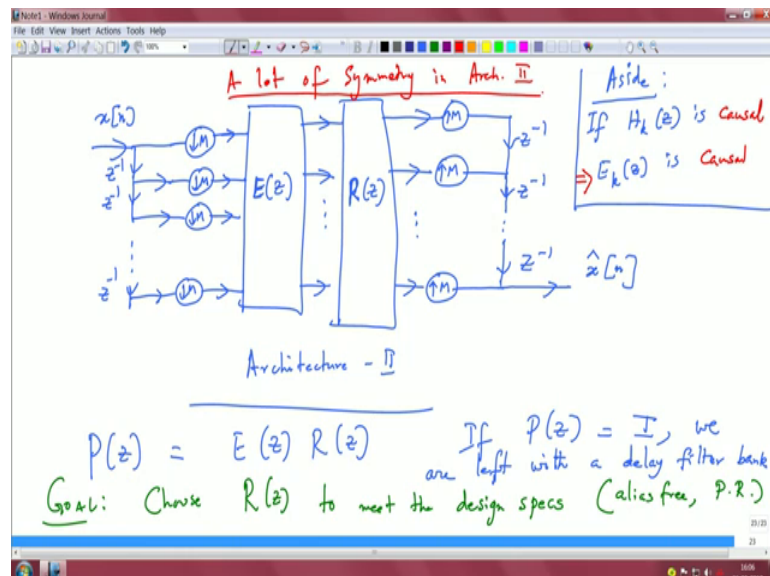 Note1 - Windows Journal
File Edit View Insert Actions Tools Help
100%
A lot of Symmetry in Arch. II
Aside :
If H_k(z) is causal
⇒ E_k(z) is causal
x[n]
↓M
z⁻¹
↓M
z⁻¹
↓M
z⁻¹
↓M
E(z)
R(z)
↑M
z⁻¹
↑M
z⁻¹
z⁻¹
↑M
x̂[n]
Architecture - II
P(z) = E(z) R(z)
If P(z) = I, we
are left with a delay filter bank
GOAL: Choose R(z) to meet the design specs (alias free, P.R.)
23/23
23
16:06